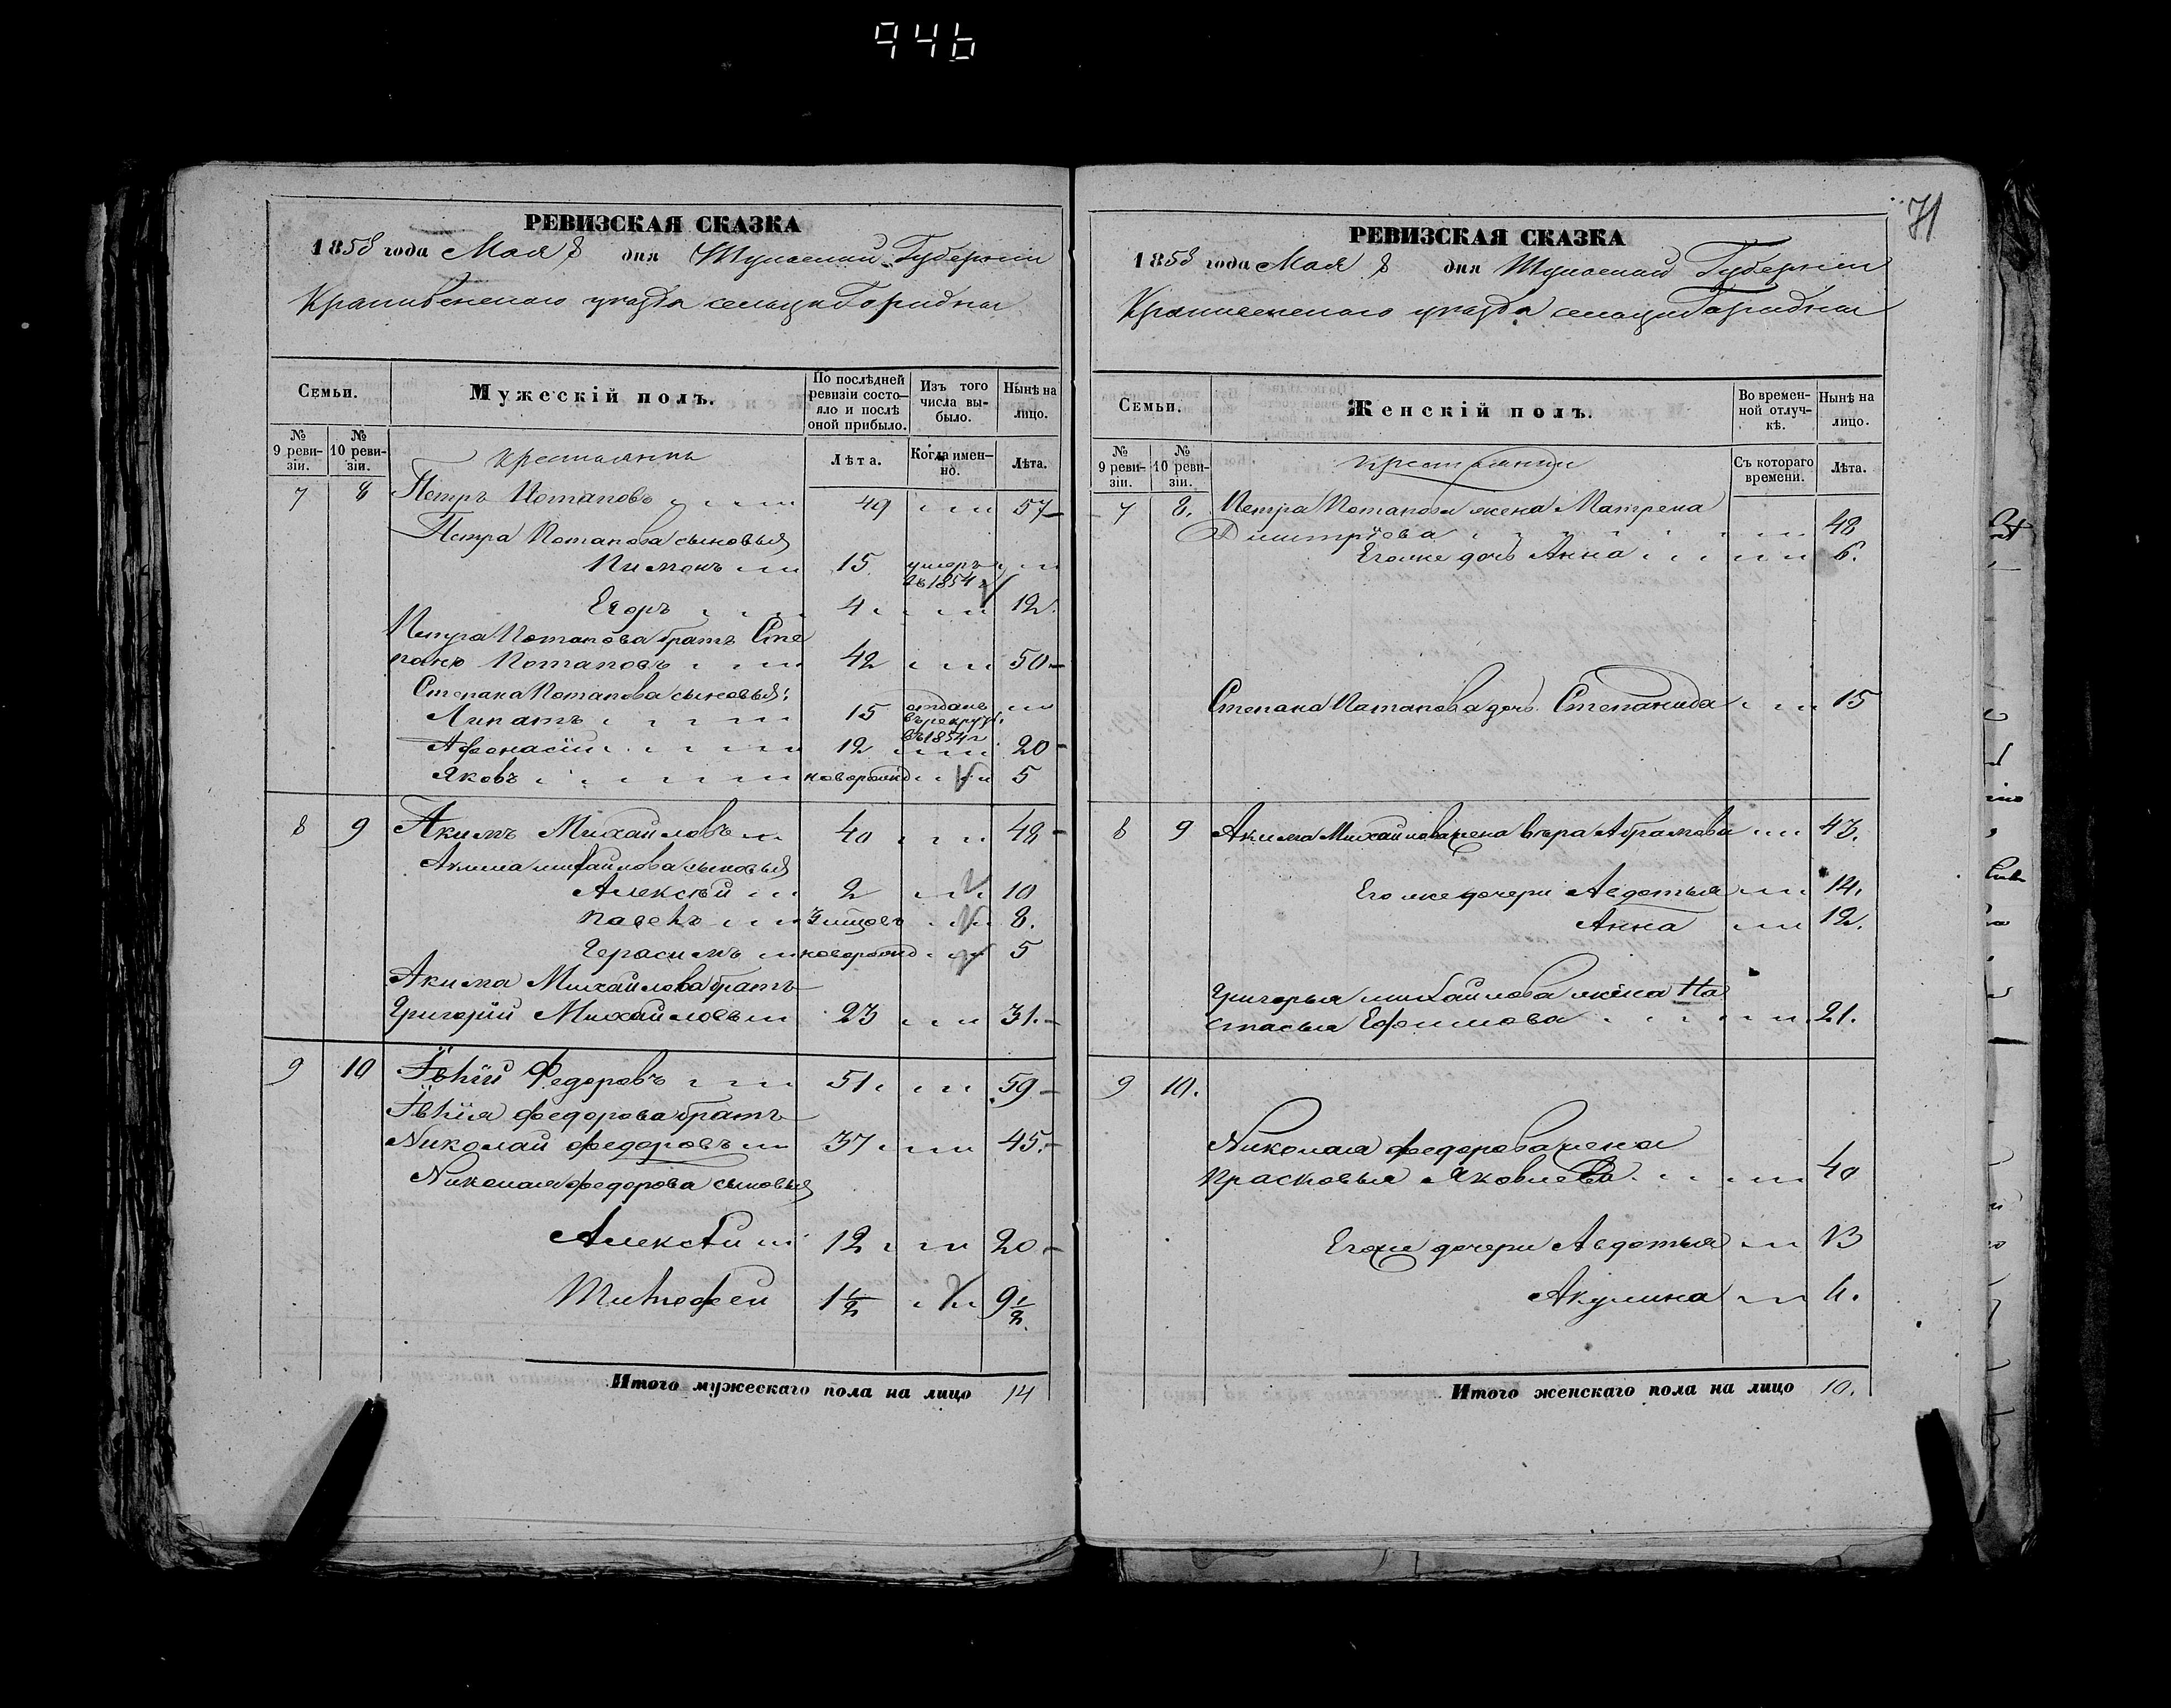 946
РЕВИЗСКАЯ СКАЗКА
1858 года Мая 8 дня Тульской Губерніи
Крапивенскаго уѣзда сельца
Семьи.
Мужескій полъ.
По послѣдней ревизіи состояло и послѣ оной прибыло.
Изъ того числа выбыло.
Нынѣ на лицо.
№ 9 ревизіи.
№ 10 ревизіи.
Крестьянъ
Лѣта.
Когда именно.
Лѣта.
7 8 Петръ Потаповъ 49 57
Петра Потапова сыновья
Пименъ 15 умеръ въ 1854 г
Егоръ 4 12.
Петра Потапова братъ Сте
панъ Потаповъ 42 50
Степана Потапова сыновья:
Липатъ 15 отданъ въ рекруты въ 1854 г
Афонасій 12 20
Яковъ новорожд 5
8 9 Акимъ Михайловъ 40 48
Акима Михайлова сыновья
Алексѣй 2 10
Павелъ 8.
Герасимъ новорожд 5
Акима Михайлова братъ
Григорій Михайловъ 23 31.
9 10 Федоровъ 51 59
Федорова братъ
Николай Федоровъ 37 45.
Николая Федорова сыновья
Алексѣй 12 20
Тимофей 1½ 9½
Итого мужескаго пола на лицо 14
71
РЕВИЗСКАЯ СКАЗКА
1858 года Мая 8 дня Тульской Губерніи
Крапивенскаго уѣзда сельца
Семьи.
Женскій полъ.
Во временной отлучкѣ.
Нынѣ на лицо.
№ 9 ревизіи.
№ 10 ревизіи.
Съ котораго времени.
Лѣта.
7 8. Петра Потапова жена Матрена
Димитріева 48
Его же дочь Анна 6.
Степана Потапова дочь Степанида 15
8 9 Акима Михайлова жена Вѣра Абрамова 43.
Его же дочери Авдотья 14.
Анна 12.
Григорья Михайлова жена На
стасья Ефимова 21.
9 10.
Николая Федорова жена
Прасковья Яковлева 40
Его же дочери Авдотья 13
Акулина 4.
Итого женскаго пола на лицо 10.